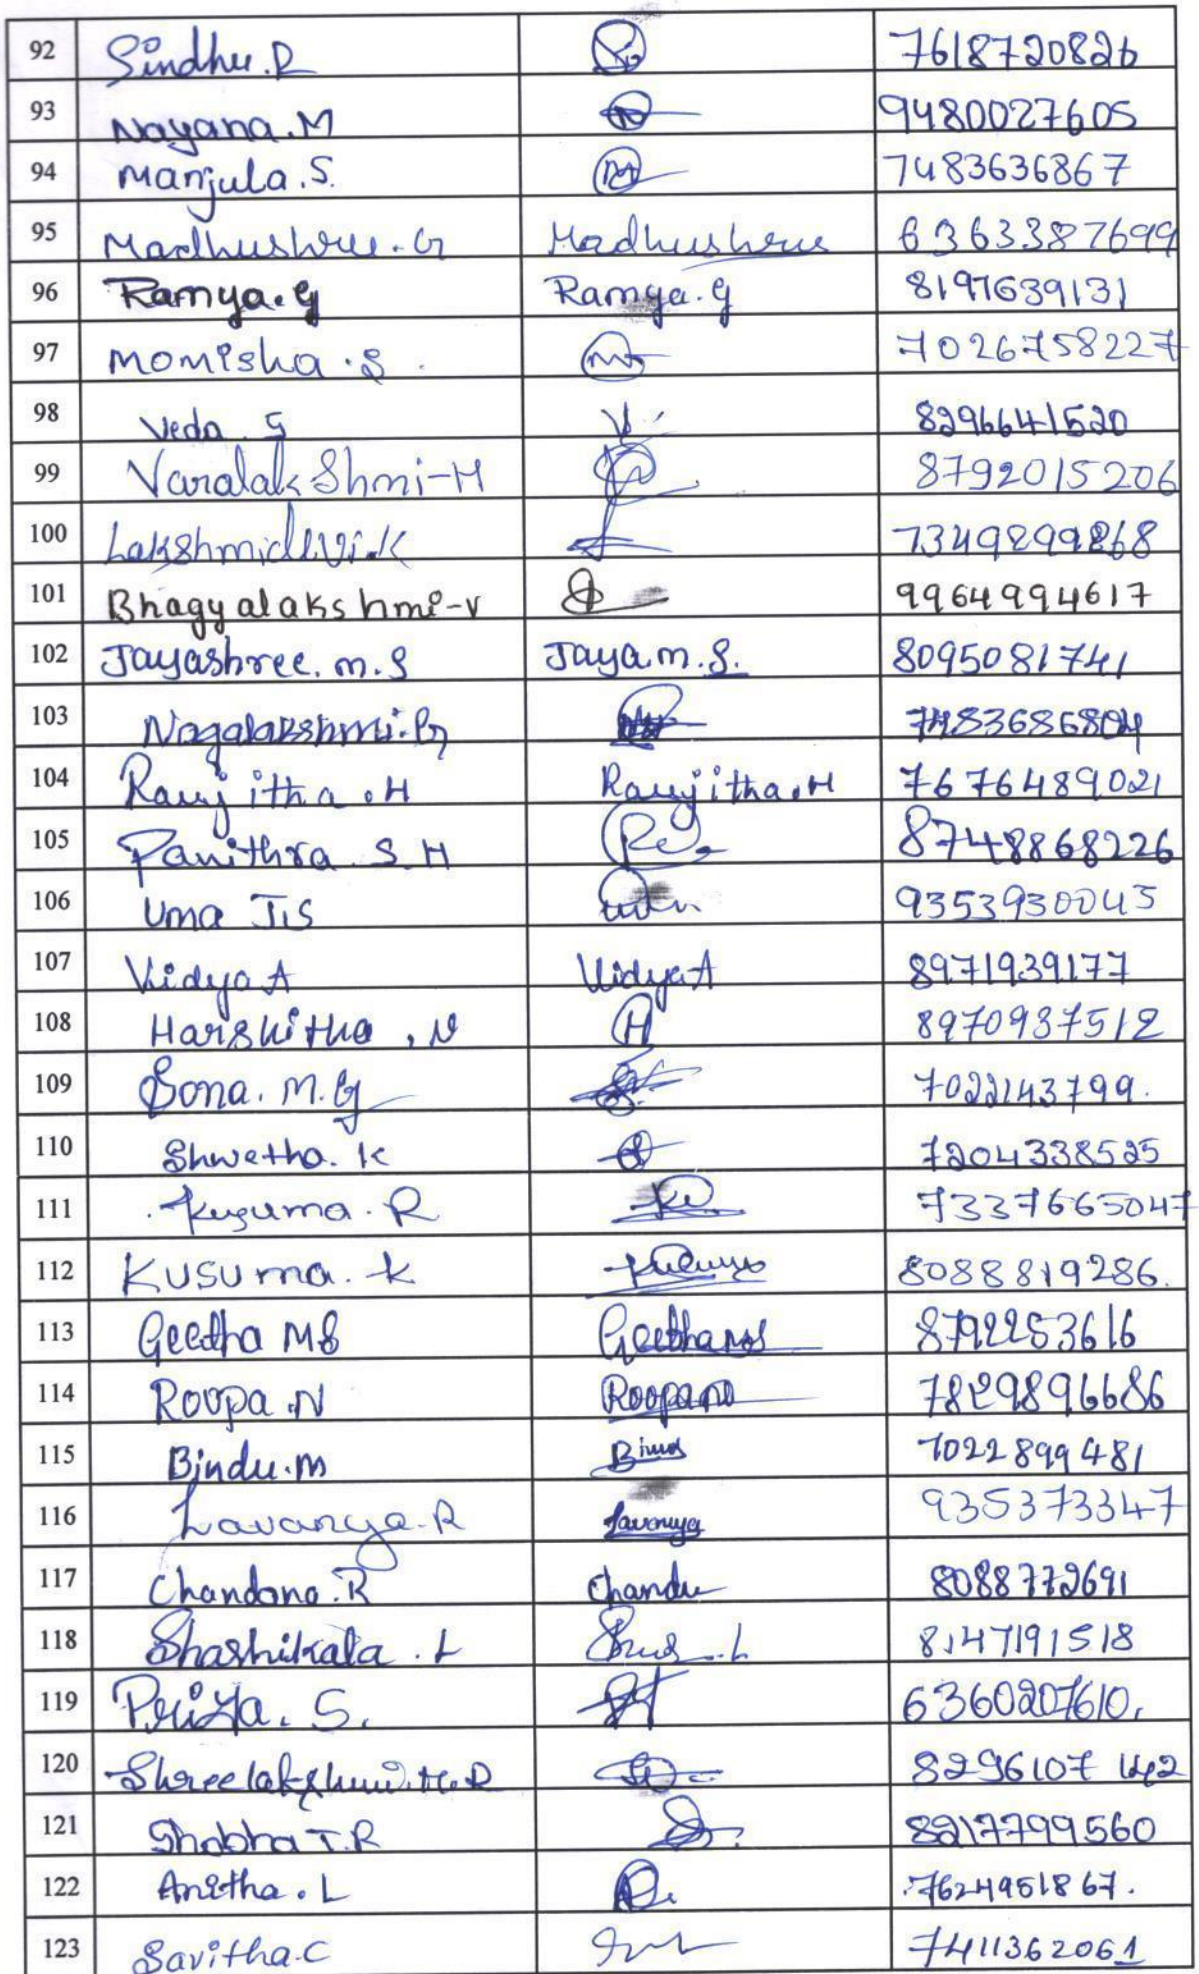 92 Sindhu.R 7618720826
93 Nayana.M 9480027605
94 Manjula.S. 7483636867
95 Madhushree.G Madhushree 6363387699
96 Ramya.G Ramya.G 8197639131
97 Momisha.S. 7026758227
98 Veda S V 8296641520
99 Varalakshmi-H 8792015206
100 Lakshmidevi.K 7349299868
101 Bhagyalakshmi-V 9964994617
102 Jayashree.m.S Jaya.m.S. 8095081741
103 Nagalakshmi.G 7483686804
104 Ranjitha.H Ranjitha.H 7676489021
105 Pavithra S.H 8748868226
106 Uma J.S 9353930045
107 Vidya A Vidya A 8971939177
108 Harshitha.N H 8970937512
109 Sona.M.G 7022143799.
110 Shwetha.K 7204338525
111 Kusuma.R 7337665047
112 Kusuma.K 8088819286.
113 Geetha MS Geetha MS 8792253616
114 Roopa.N Roopa N 7829896686
115 Bindu.M 7022899481
116 Lavanya.R Lavanya 935373347
117 Chandana.R Chandu 8088772691
118 Shashikala.L 8147191518
119 Priya.S. 6360207610.
120 Shreelakshmi.H.R 8296107142
121 Shobha T.R 8217799560
122 Anitha.L 7624951867.
123 Savitha.C 7411362061